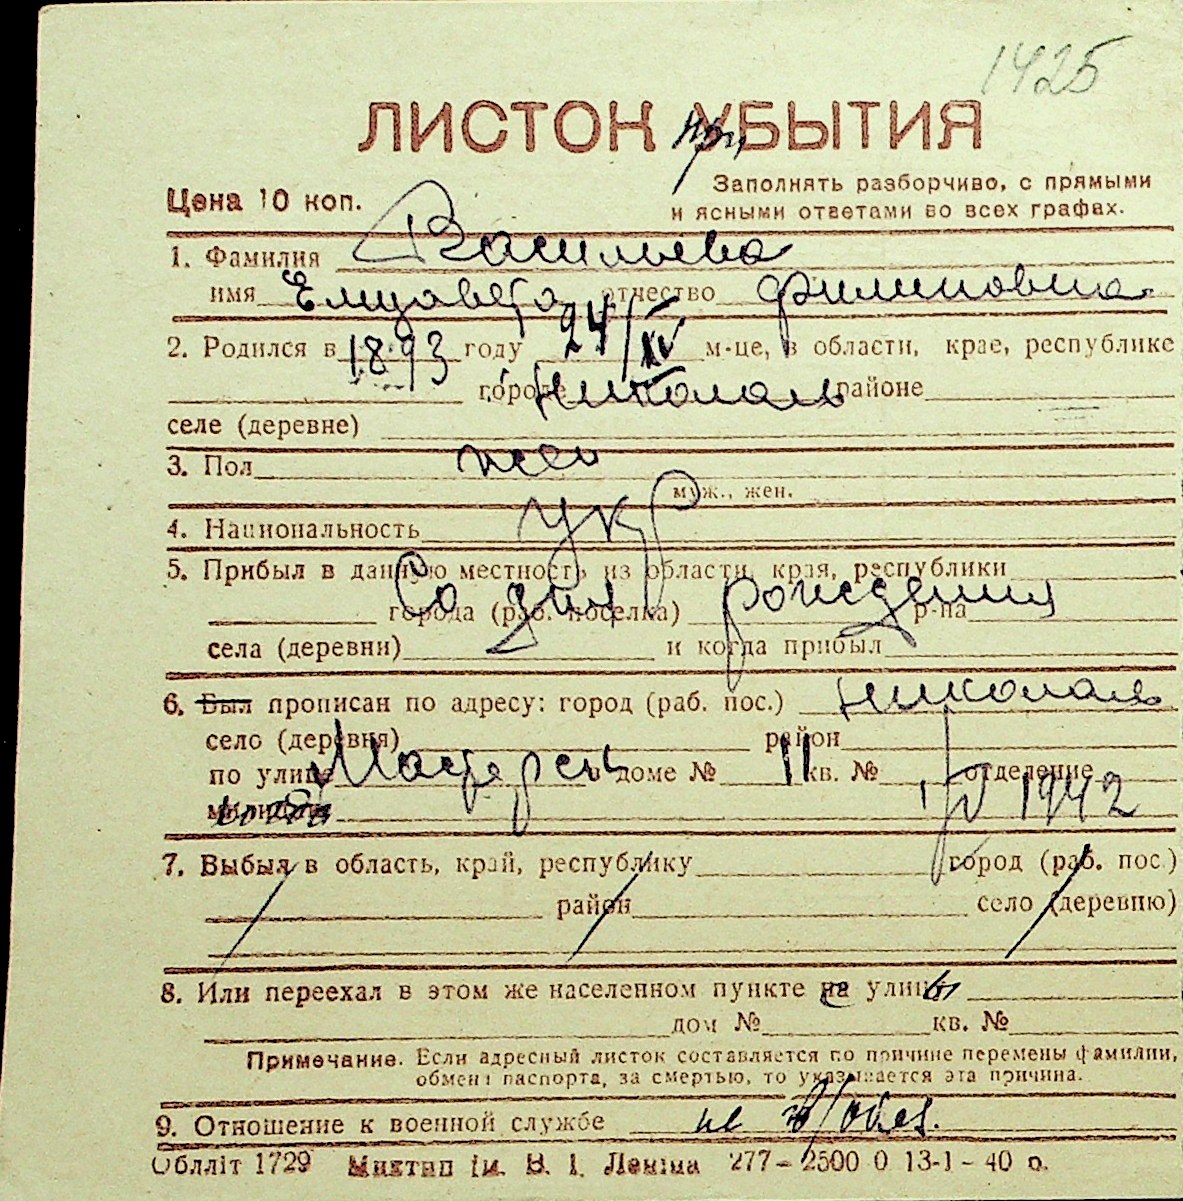 1425
ЛИСТОК УБЫТИЯ
при
Цена 10 коп.
Заполнять разборчиво, с прямыми
и ясными ответами во всех графах.
1. Фамилия Васильева
имя Елизавета отчество Филиповна
2. Родился в 1893 году 24/IV м-це, в области, крае, республике
городе Николаев районе
селе (деревне)
3. Пол жен
муж., жен.
4. Национальность Укр
5. Прибыл в данную местность из области, края, республики
Со дня рождения
города (раб. поселка) р-на
села (деревни) и когда прибыл
6. Был прописан по адресу: город (раб. пос.) Николаев
село (деревня) район
по улице Мастерск в доме № 11 кв. № отделение
милиции 1/V 1942
7. Выбыл в область, край, республику город (раб. пос.)
район село (деревню)
8. Или переехал в этом же населенном пункте на улицу
дом № кв. №
Примечание. Если адресный листок составляется по причине перемены фамилии,
обмена паспорта, за смертью, то указывается эта причина.
9. Отношение к военной службе не в/обяз.
Облліт 1729 Миктип ім. В. І. Леніна 277–2500 0 13-1-40 р.